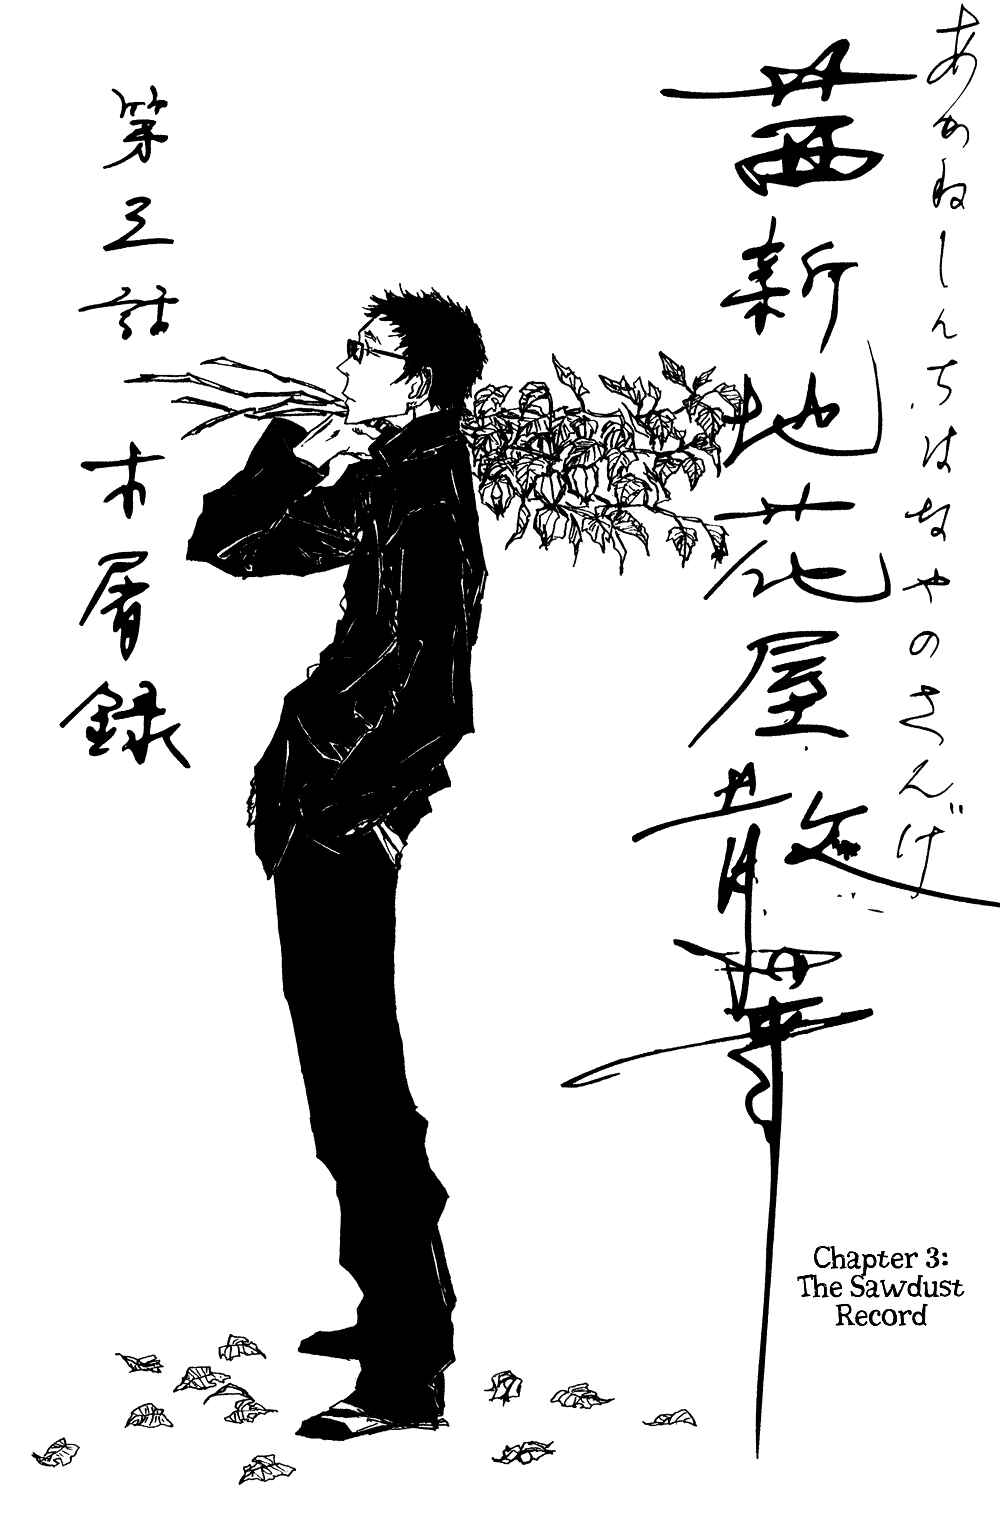 あかねしんちはなやのさんげ
茜新地花屋散華
第三話
木屑録
Chapter 3:
The Sawdust
Record